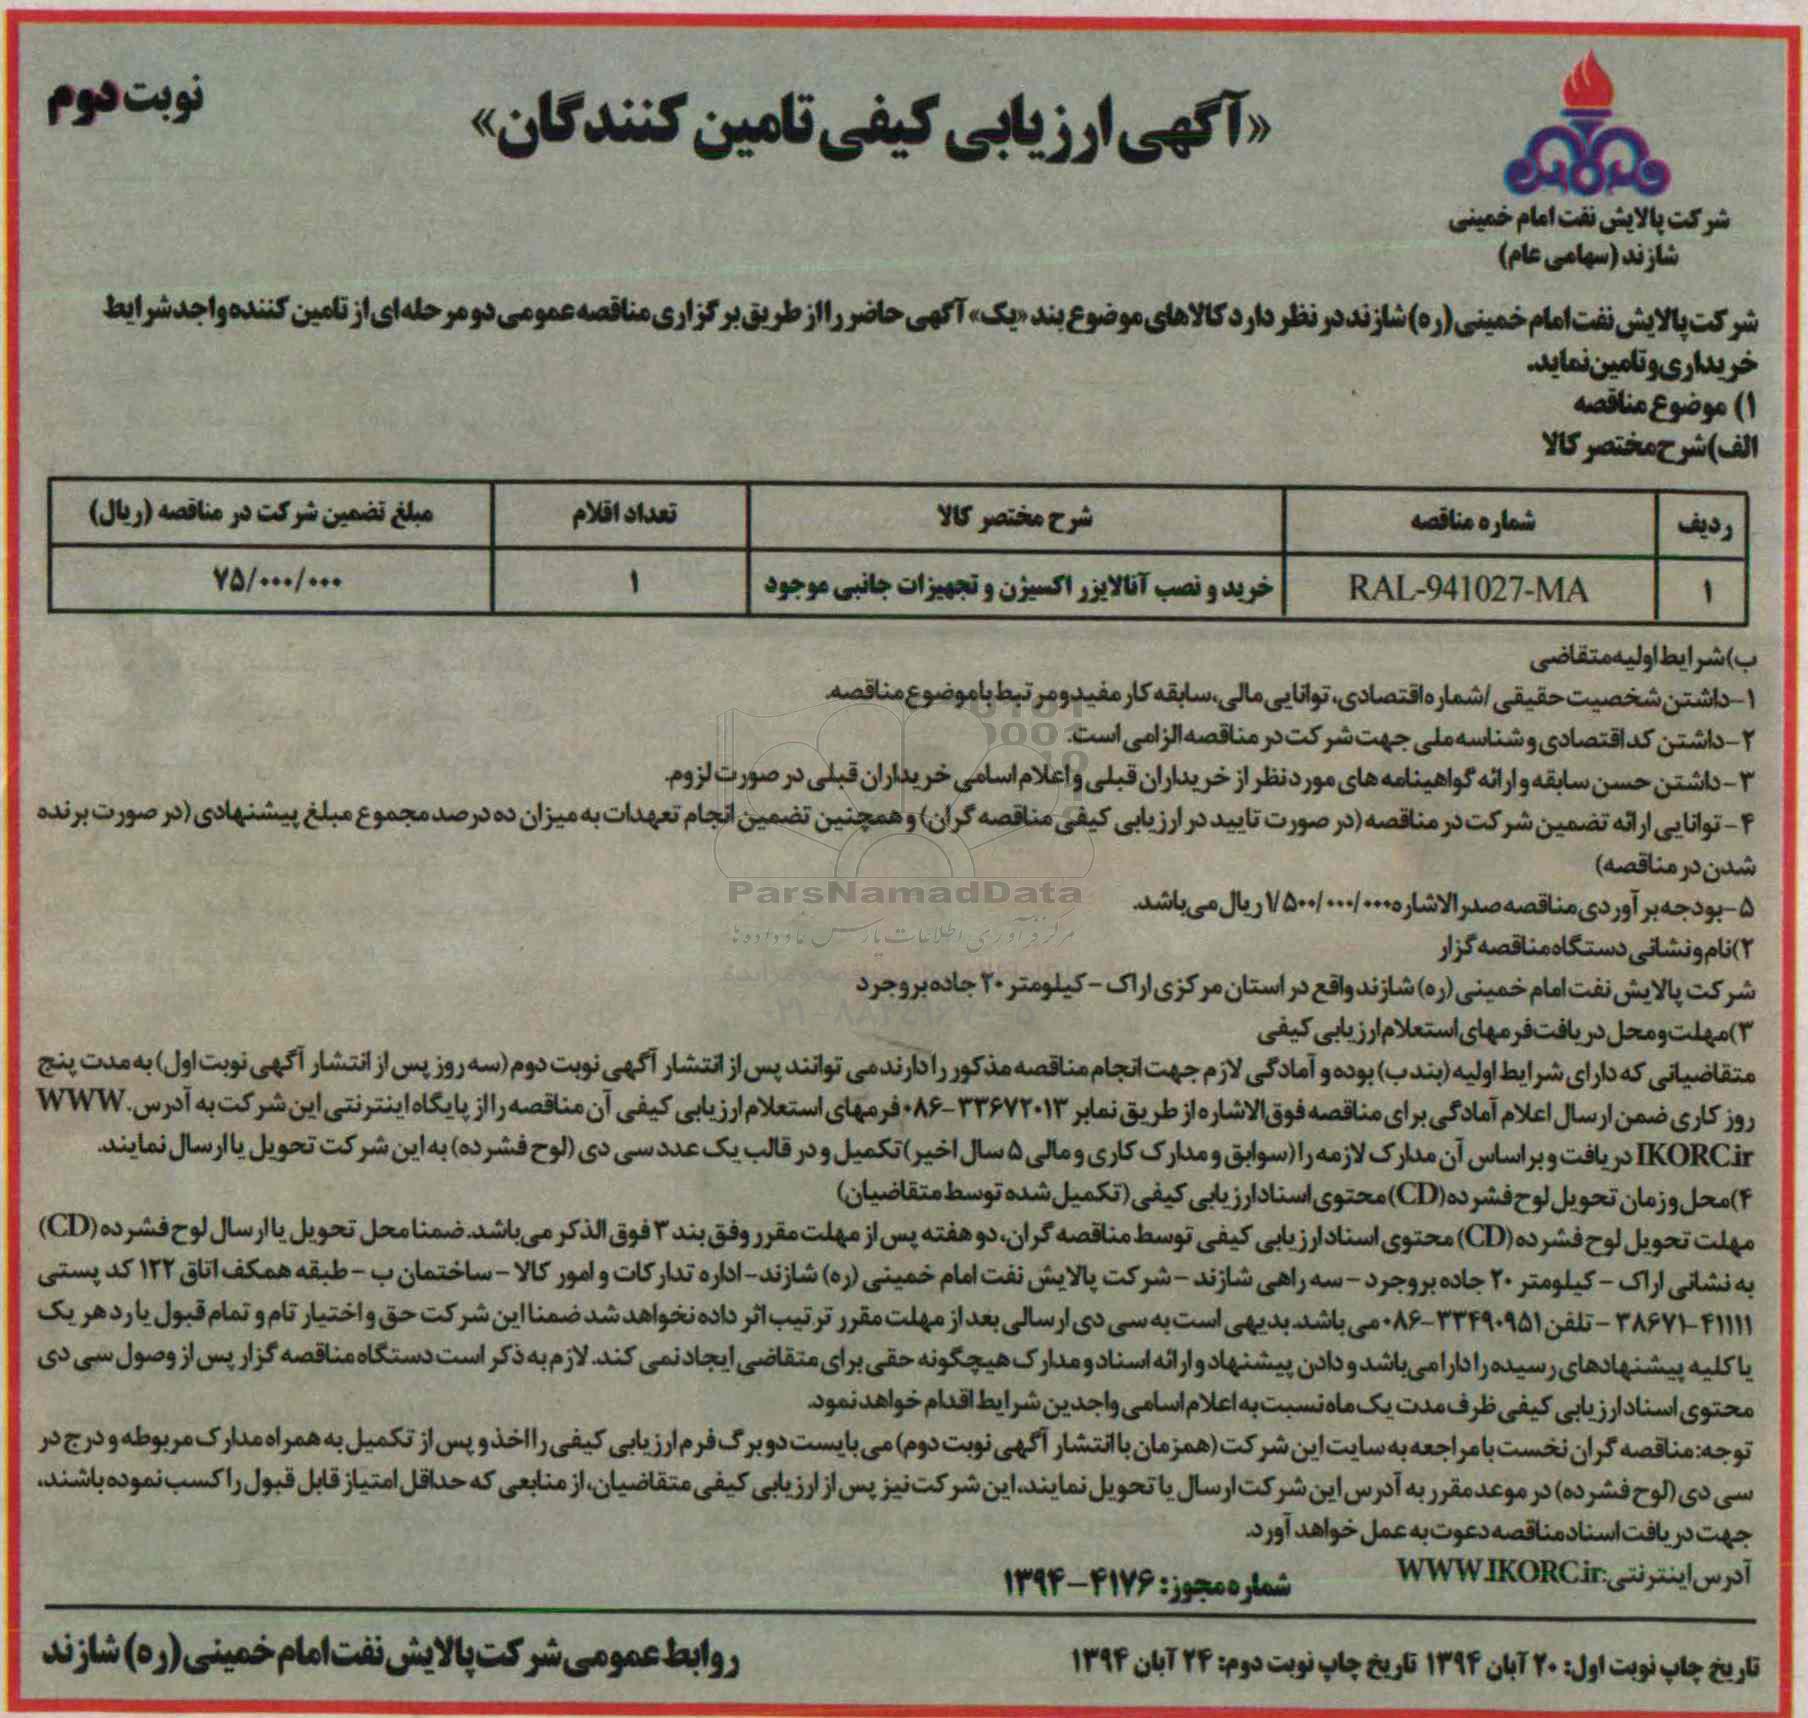 نوبت دوم
«آگهی ارزیابی کیفی تامین کنندگان»
شرکت پالایش نفت امام خمینی
شازند (سهامی عام)
شرکت پالایش نفت امام خمینی (ره) شازند در نظر دارد کالاهای موضوع بند «یک» آگهی حاضر را از طریق برگزاری مناقصه عمومی دو مرحله ای از تامین کننده واجد شرایط
خریداری و تامین نماید.
۱) موضوع مناقصه
الف) شرح مختصر کالا
ردیف شماره مناقصه شرح مختصر کالا تعداد اقلام مبلغ تضمین شرکت در مناقصه (ریال)
۱ RAL-941027-MA خرید و نصب آنالایزر اکسیژن و تجهیزات جانبی موجود ۱ ۷۵/۰۰۰/۰۰۰
ب) شرایط اولیه متقاضی
۱-داشتن شخصیت حقیقی /شماره اقتصادی، توانایی مالی، سابقه کار مفید و مرتبط با موضوع مناقصه.
۲-داشتن کد اقتصادی و شناسه ملی جهت شرکت در مناقصه الزامی است.
۳-داشتن حسن سابقه و ارائه گواهینامه های مورد نظر از خریداران قبلی و اعلام اسامی خریداران قبلی در صورت لزوم.
۴- توانایی ارائه تضمین شرکت در مناقصه (در صورت تایید در ارزیابی کیفی مناقصه گران) و همچنین تضمین انجام تعهدات به میزان ده درصد مجموع مبلغ پیشنهادی (در صورت برنده
شدن در مناقصه)
۵-بودجه برآوردی مناقصه صدرالاشاره ۱/۵۰۰/۰۰۰/۰۰۰ ریال می باشد.
ParsNamadData
مرکز فرآوری اطلاعات پارس نماد داده ها
۲)نام و نشانی دستگاه مناقصه گزار
شرکت پالایش نفت امام خمینی (ره) شازند واقع در استان مرکزی اراک - کیلومتر ۲۰ جاده بروجرد
۳)مهلت و محل دریافت فرمهای استعلام ارزیابی کیفی
متقاضیانی که دارای شرایط اولیه (بند ب) بوده و آمادگی لازم جهت انجام مناقصه مذکور را دارند می توانند پس از انتشار آگهی نوبت دوم (سه روز پس از انتشار آگهی نوبت اول) به مدت پنج
روز کاری ضمن ارسال اعلام آمادگی برای مناقصه فوق الاشاره از طریق نمابر ۳۳۶۷۲۰۱۳-۰۸۶ فرمهای استعلام ارزیابی کیفی آن مناقصه را از پایگاه اینترنتی این شرکت به آدرس WWW.
IKORC.ir دریافت و براساس آن مدارک لازمه را (سوابق و مدارک کاری و مالی ۵ سال اخیر) تکمیل و در قالب یک عدد سی دی (لوح فشرده) به این شرکت تحویل یا ارسال نمایند.
۴)محل و زمان تحویل لوح فشرده (CD) محتوی اسناد ارزیابی کیفی (تکمیل شده توسط متقاضیان)
مهلت تحویل لوح فشرده (CD) محتوی اسناد ارزیابی کیفی توسط مناقصه گران، دو هفته پس از مهلت مقرر وفق بند ۳ فوق الذکر می باشد. ضمنا محل تحویل یا ارسال لوح فشرده (CD)
به نشانی اراک - کیلومتر ۲۰ جاده بروجرد - سه راهی شازند - شرکت پالایش نفت امام خمینی (ره) شازند- اداره تدارکات و امور کالا - ساختمان ب - طبقه همکف اتاق ۱۲۲ کد پستی
۴۱۱۱۱-۳۸۶۷۱ - تلفن ۳۳۴۹۰۹۵۱-۰۸۶ می باشد. بدیهی است به سی دی ارسالی بعد از مهلت مقرر ترتیب اثر داده نخواهد شد ضمنا این شرکت حق و اختیار تام و تمام قبول یا رد هر یک
یا کلیه پیشنهادهای رسیده را دارا می باشد و دادن پیشنهاد و ارائه اسناد و مدارک هیچگونه حقی برای متقاضی ایجاد نمی کند. لازم به ذکر است دستگاه مناقصه گزار پس از وصول سی دی
محتوی اسناد ارزیابی کیفی ظرف مدت یک ماه نسبت به اعلام اسامی واجدین شرایط اقدام خواهد نمود.
توجه: مناقصه گران نخست با مراجعه به سایت این شرکت (همزمان با انتشار آگهی نوبت دوم) می بایست دو برگ فرم ارزیابی کیفی را اخذ و پس از تکمیل به همراه مدارک مربوطه و درج در
سی دی (لوح فشرده) در موعد مقرر به آدرس این شرکت ارسال یا تحویل نمایند. این شرکت نیز پس از ارزیابی کیفی متقاضیان، از منابعی که حداقل امتیاز قابل قبول را کسب نموده باشند،
جهت دریافت اسناد مناقصه دعوت به عمل خواهد آورد.
آدرس اینترنتی: WWW.IKORC.ir
شماره مجوز: ۴۱۷۶-۱۳۹۴
تاریخ چاپ نوبت اول: ۲۰ آبان ۱۳۹۴ تاریخ چاپ نوبت دوم: ۲۴ آبان ۱۳۹۴
روابط عمومی شرکت پالایش نفت امام خمینی (ره) شازند